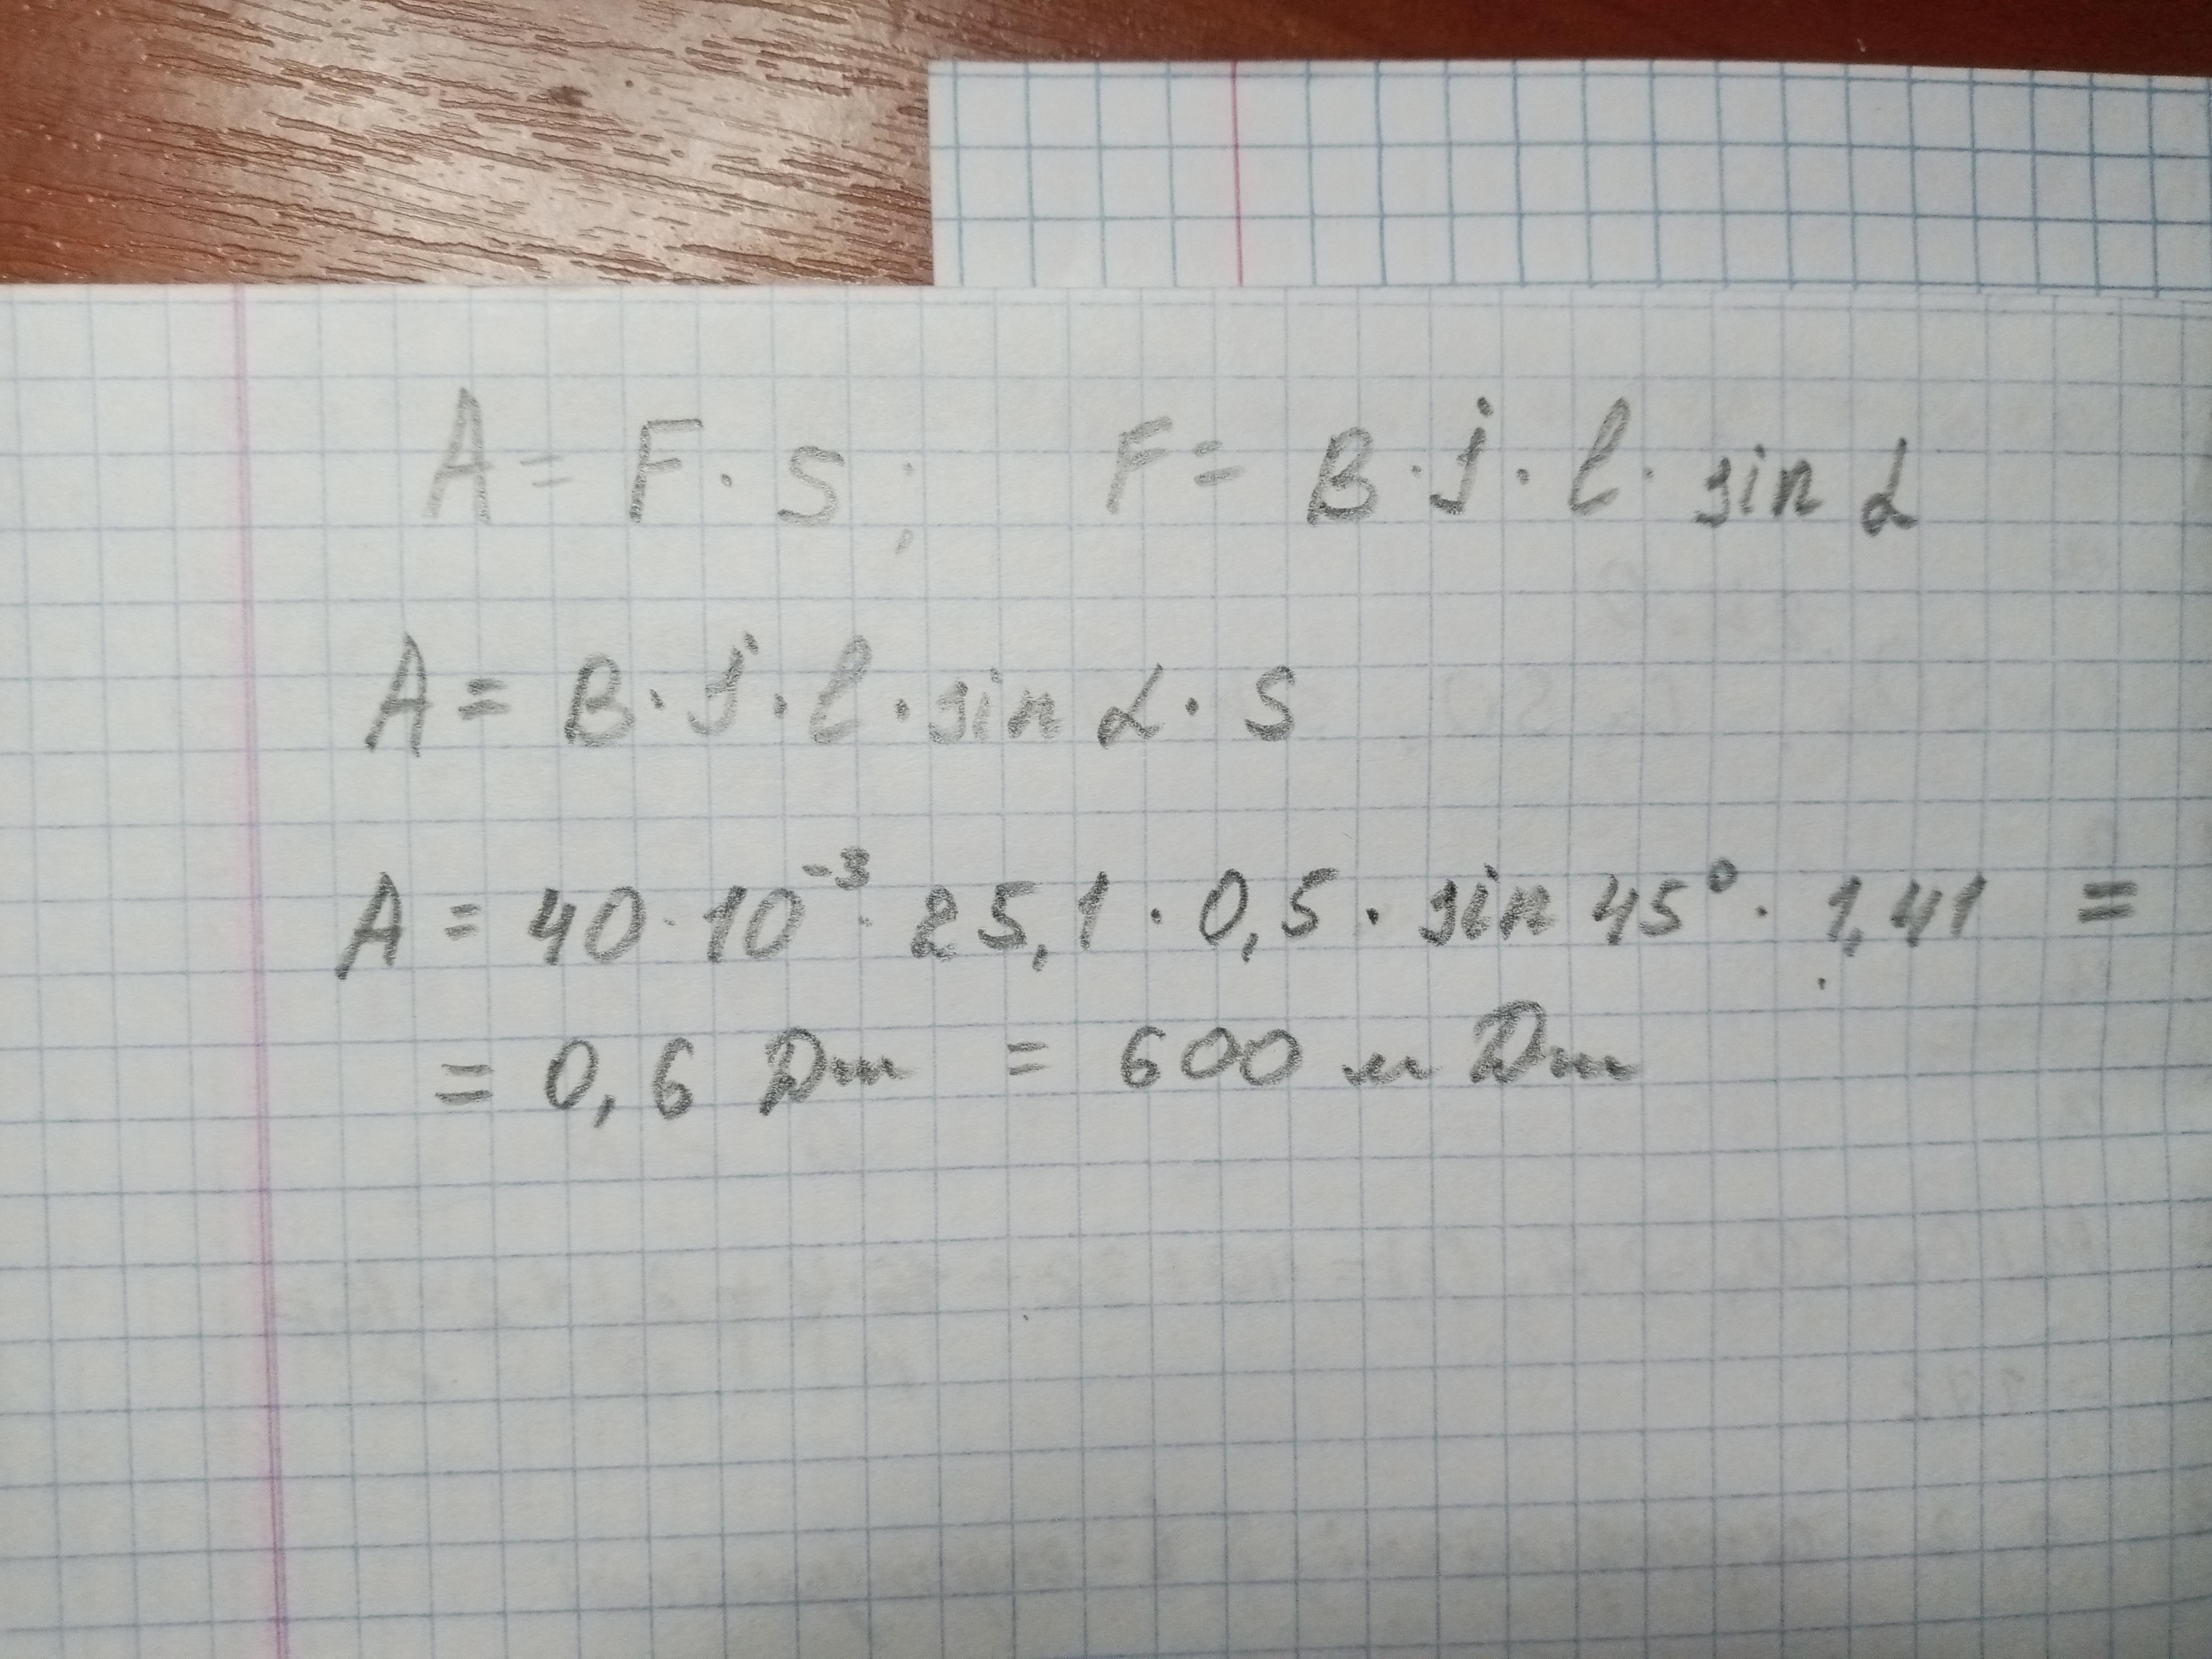 A = F · S; F = B · j · l · sin α
A = B · j · l · sin α · S
A = 40 · 10⁻³ · 25,1 · 0,5 · sin 45° · 1,41 =
= 0,6 Дж = 600 мДж